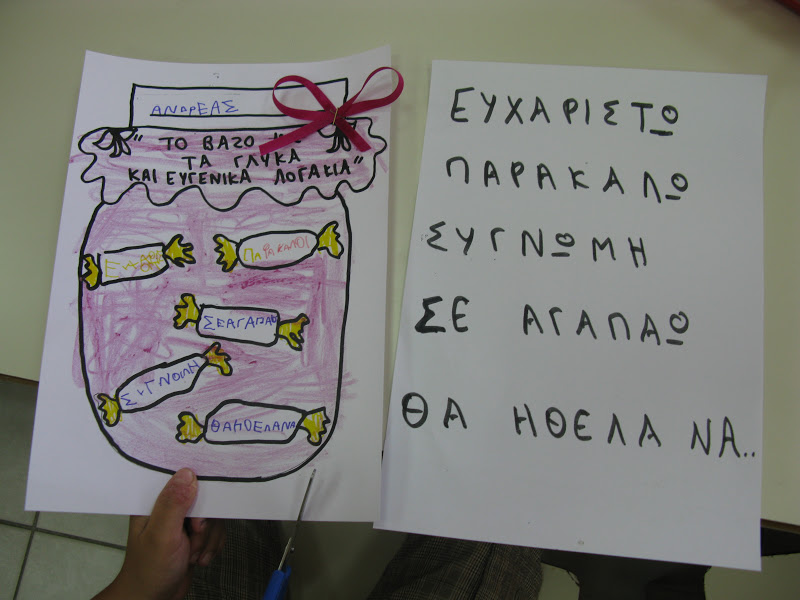 ΑΝΔΡΕΑΣ
"ΤΟ ΒΑΖΟ ΜΕ
ΤΑ ΓΛΥΚΑ
ΚΑΙ ΕΥΓΕΝΙΚΑ ΛΟΓΑΚΙΑ"
ΣΕΑΓΑΠΑΩ
ΣΥΓΝΟΜΗ
ΘΑΗΘΕΛΑΝΑ
ΕΥΧΑΡΙΣΤΩ
ΠΑΡΑΚΑΛΩ
ΣΥΓΝΩΜΗ
ΣΕ ΑΓΑΠΑΩ
ΘΑ ΗΘΕΛΑ ΝΑ..